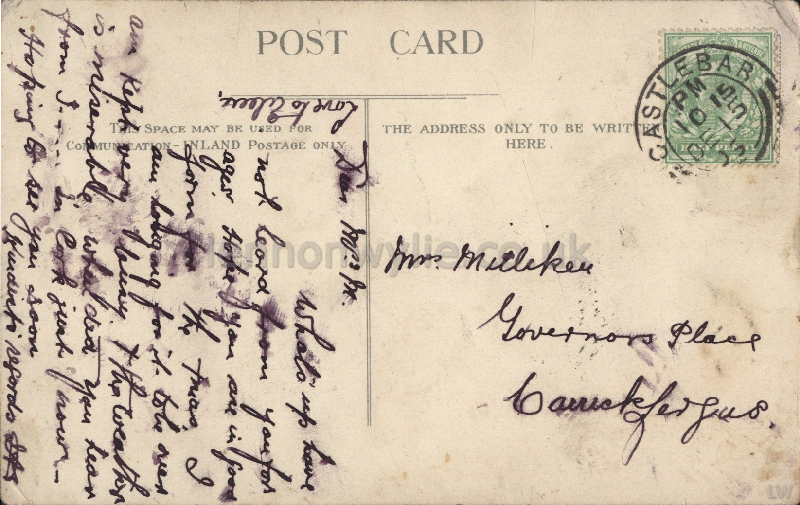 POST CARD
THE SPACE MAY BE USED FOR
COMMUNICATION - INLAND POSTAGE ONLY
THE ADDRESS ONLY TO BE WRITTEN
HERE.
CASTLEBAR
PM
DE 1
HALFPENNY
Mrs Milliken
Governors Place
Carrickfergus.
Dear Mrs M.
Whats up have
not heard from you for
ages Hope you are in good
form for the Xmas I
am longing for it to be over
am kept very busy & the weather
is miserable what did you hear
from J---- in Cork just now --
Hoping to see you soon
Kindest regards
Love to Eileen,
Lennonwylie.co.uk
LW